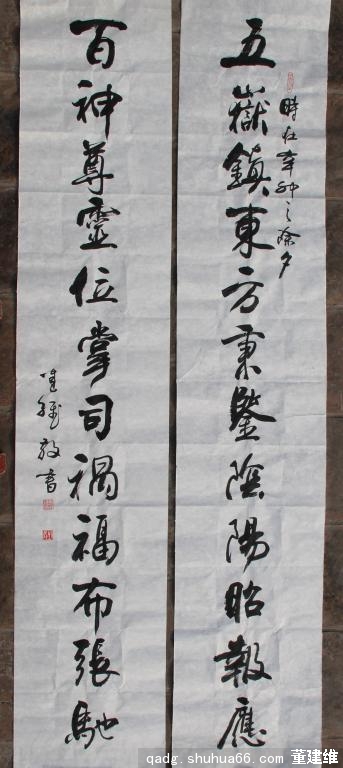 五嶽鎮東方秉鑒陰陽昭報應
時在辛卯之除夕
百神尊靈位掌司禍福布張馳
敬書
qadg.shuhua66.com 董建维